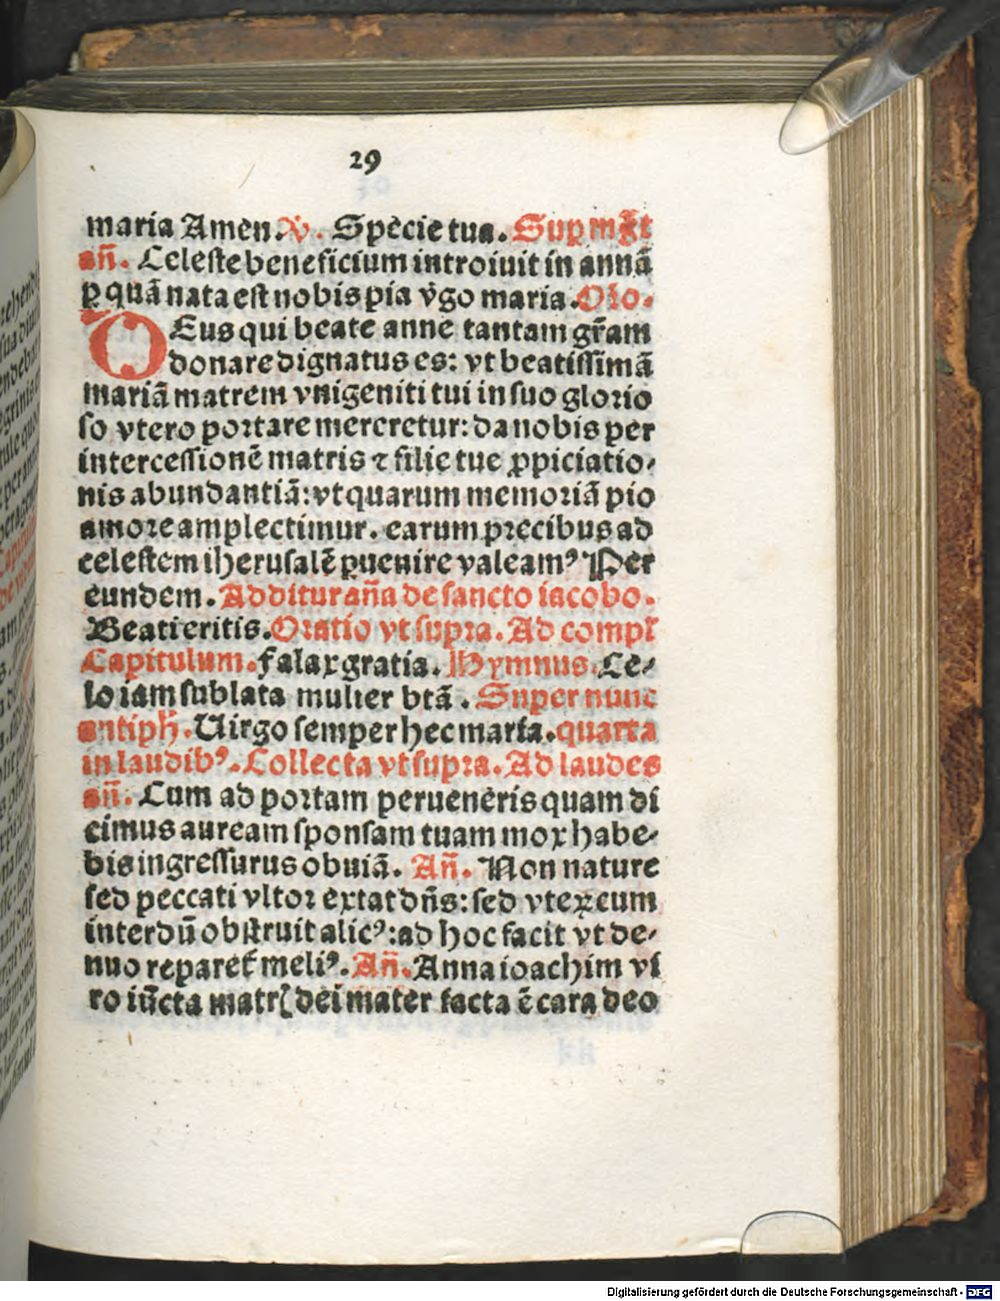 29
maria Amen. ℣. Specie tua. Sup mg̅t
an̄. Celeste beneficium introiuit in annā
ꝑ quā nata est nobis pia v̄go maria. Oro.
DEus qui beate anne tantam gr̄am
donare dignatus es: vt beatissimā
mariā matrem vnigeniti tui in suo glorio
so vtero portare mereretur: da nobis per
intercessionē matris ⁊ filie tue ꝓpiciatio⸗
nis abundantiā: vt quarum memoriā pio
amore amplectimur. earum precibus ad
celestem iherusalē ꝑuenire valeamꝰ Per
eundem. Additur an̄a de sancto iacobo.
Beati eritis. Oratio vt supra. Ad compl̄
Capitulum. Falax gratia. Hymnus. Ce⸗
lo iam sublata mulier btā. Super nunc
antiph̄. Uirgo semper hec maria. quarta
in laudibꝰ. Collecta vt supra. Ad laudes
an̄. Cum ad portam perueneris quam di
cimus auream sponsam tuam mox habe⸗
bis ingressurus obuiā. An̄. Non nature
sed peccati vltor extat dn̄s: sed vterum
interdū obstruit alicꝰ: ad hoc facit vt de⸗
nuo reparet᷑ meliꝰ. An̄. Anna ioachim vi
ro iūcta matr̄ dei mater facta ē cara deo
Digitalisierung gefördert durch die Deutsche Forschungsgemeinschaft - DFG